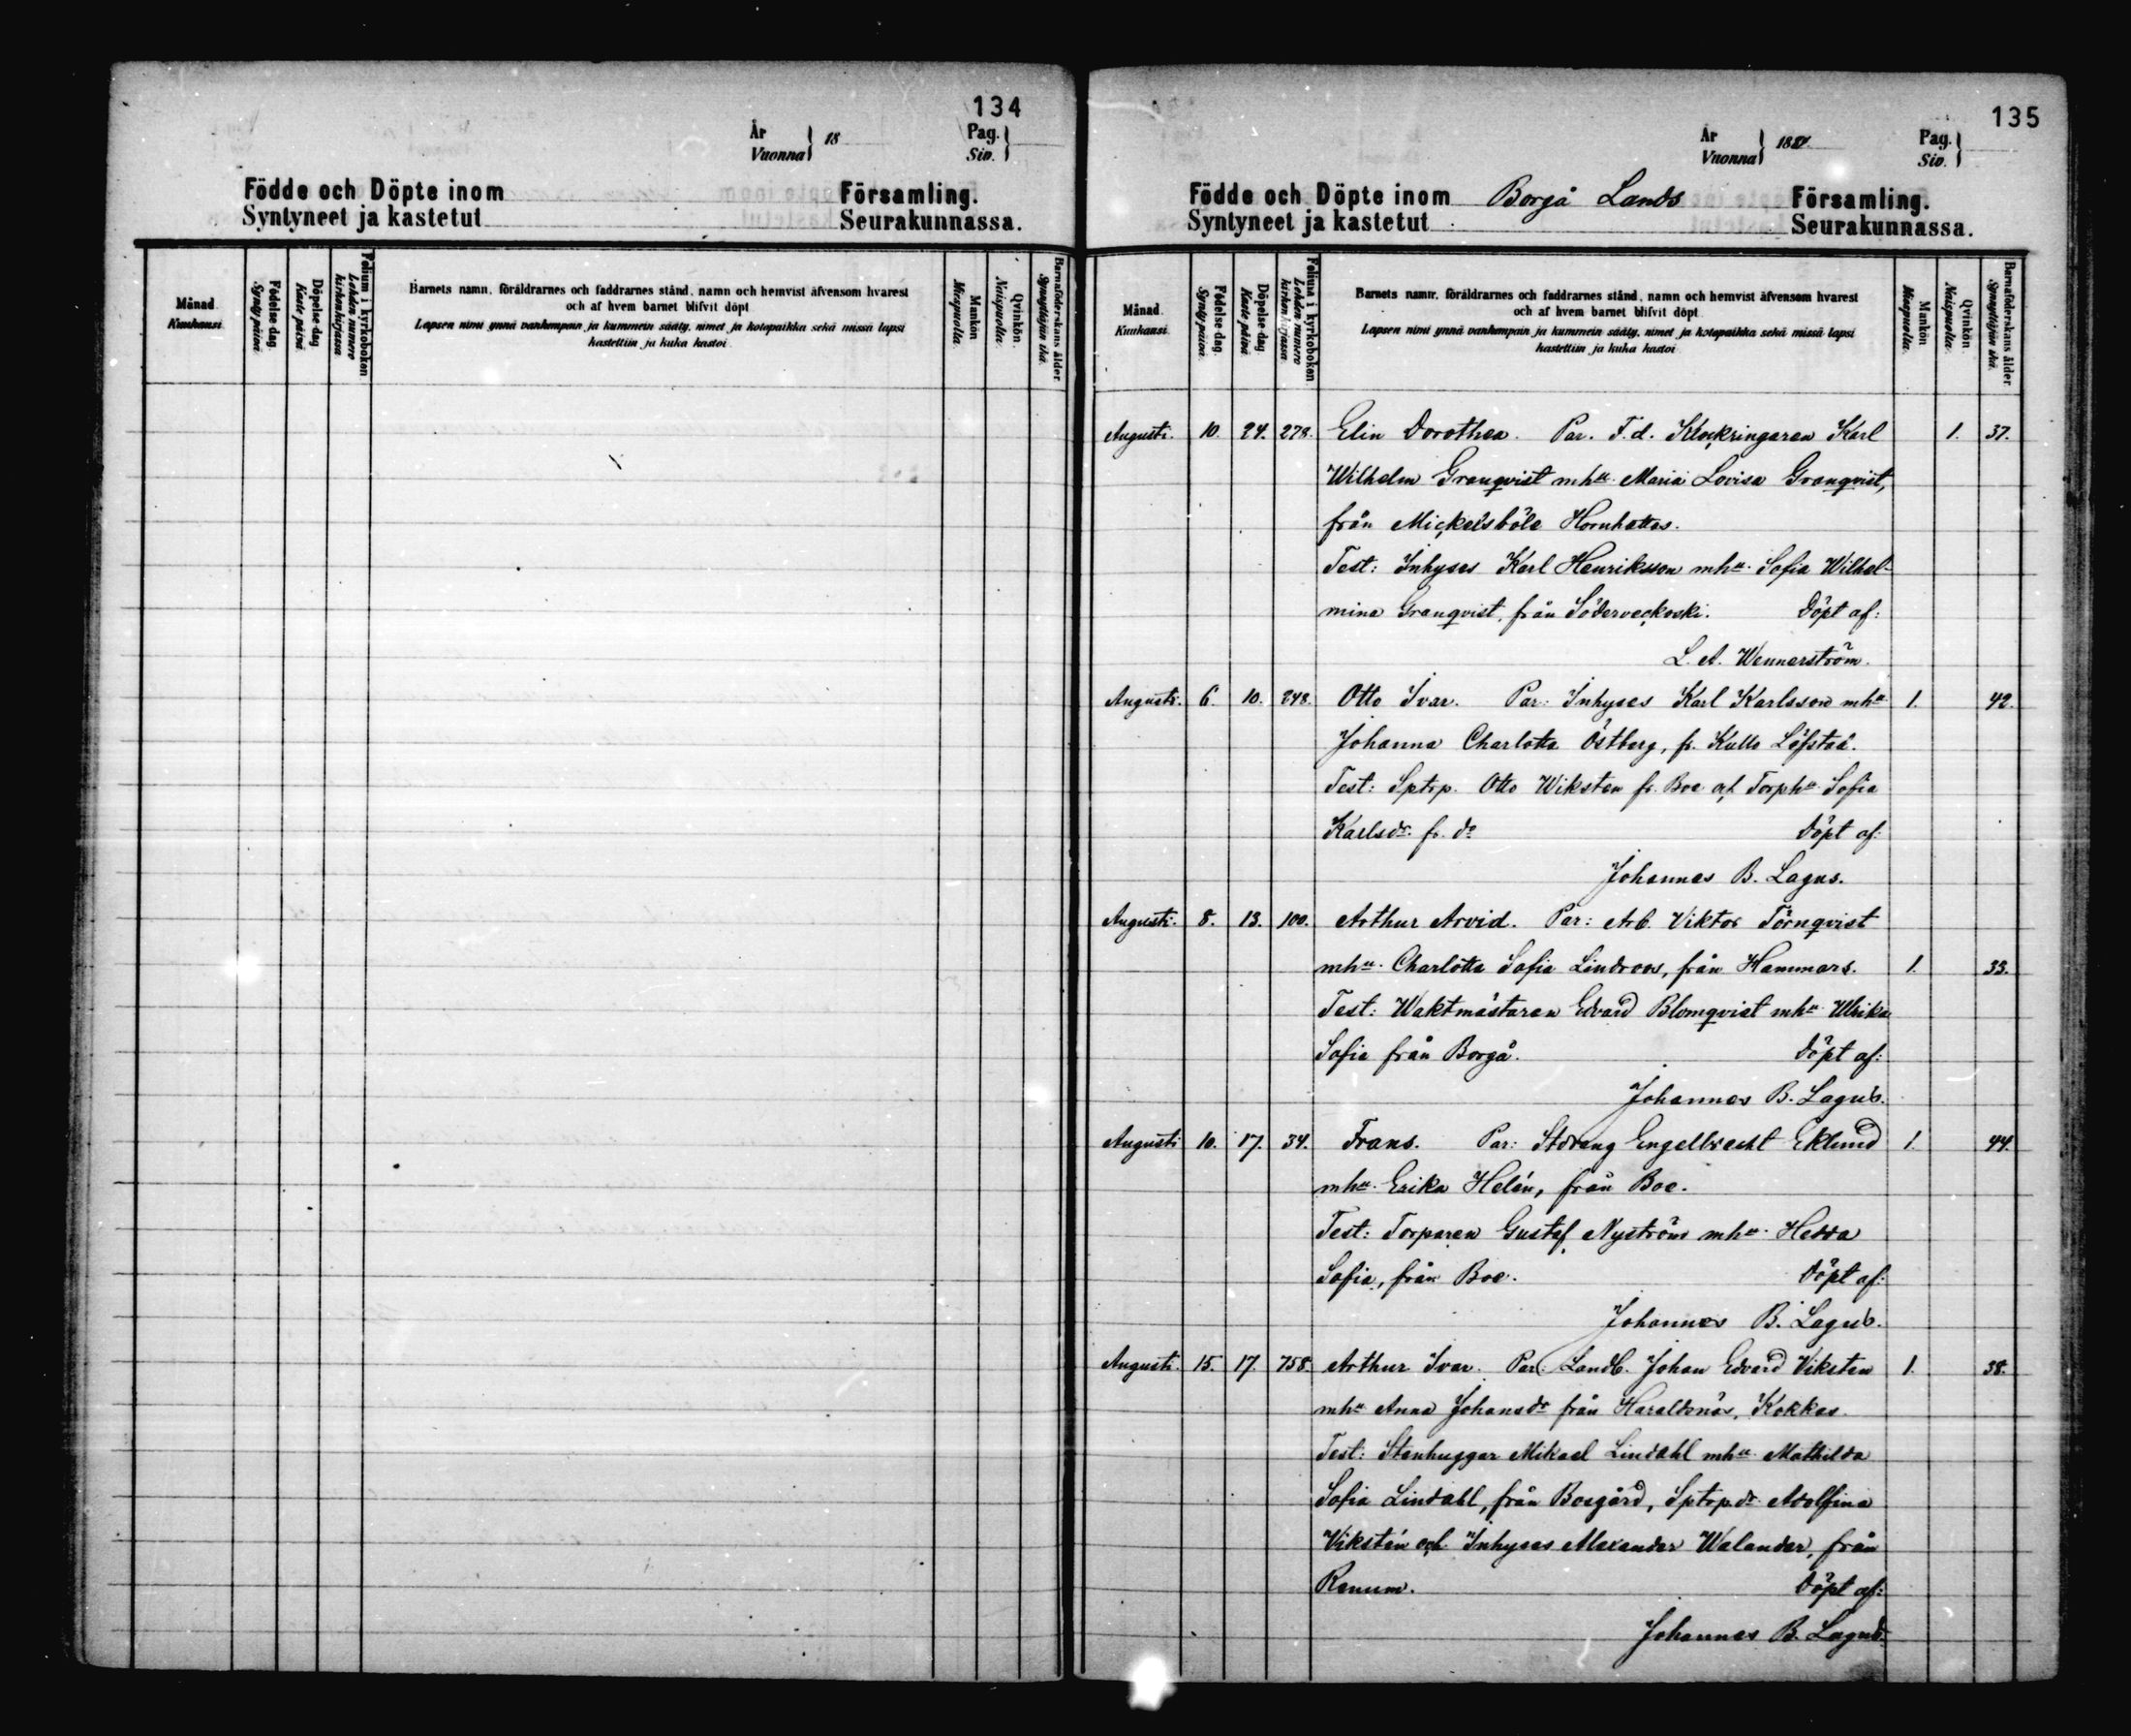 134
År
Vuonna } 18
Pag.
Siv. }
Födde och Döpte inom Församling.
Syntyneet ja kastetut Seurakunnassa.
Månad. Kuuhausi.
Födelse-dag. Synty päivä.
Döpelse-dag. Kaste päivä.
Folium i kyrkoboken. Lehden numero kirkonkirjassa
Barnets namn, föräldrarnes och faddrarnes stånd, namn och hemvist äfvensom hvarest
och af hvem barnet blifvit döpt
Lapsen nimi ynnä vanhempain ja kummein sääty, nimet ja kotopaikka sekä missä lapsi
kastettiin ja kuka kastoi
Mankön Miespuolia.
Qvinkön. Naispuolia.
Barnaföderskans ålder. Synnyttäjän ikä.
135
År
Vuonna } 188
Pag.
Siv. }
Födde och Döpte inom Borgå Lands Församling.
Syntyneet ja kastetut Seurakunnassa.
Månad. Kuuhausi.
Födelse-dag. Synty päivä.
Döpelse-dag Kaste päivä.
Folium i kyrkoboken. Lehden numero kirkonkirjassa.
Barnets namn, föräldrarnes och faddrarnes stånd, namn och hemvist äfvensom hvarest
och af hvem barnet blifvit döpt
Lapsen nimi ynnä vanhempain ja kummein sääty, nimet ja kotopaikka sekä missä lapsi
kastettiin ja kuka kastoi
Mankön Miespuolia.
Qvinkön Naispuolia.
Barnaföderskans ålder. Synnyttäjän ikä.
Augusti. 10. 24. 278. Elin Dorothea. Par. F.d. Klockringaren Karl 1. 37.
Wilhelm Granqvist mhu. Maria Lovisa Granqvist,
från Mickelsböle Hornhattas.
Test: Inhyses Karl Henriksson mhu. Sofia Wilhel-
mina Granqvist, från Söderveckoski. Döpt af:
L. A. Wennerström.
Augusti. 6. 10. 248. Otto Ivar. Par: Inhyses Karl Karlsson mhu 1. 42.
Johanna Charlotta Östberg, fr. Kullo Löfstad.
Test: Sptrp. Otto Wiksten fr. Boe och Torphu Sofia
Karlsdr. fr. do Döpt af:
Johannes B. Lagus.
Augusti. 8. 13. 100. Arthur Arvid. Par: Arb. Viktor Törnqvist
mhu. Charlotta Sofia Lindroos, från Hammars. 1. 33.
Test: Waktmästaren Edvard Blomqvist mhu Ulrika
Sofia från Borgå. Döpt af:
Johannes B. Lagus.
Augusti 10. 17. 34. Frans. Par: Stdräng Engelbrecht Eklund 1. 44.
mhu. Erika Helén, från Boe.
Test: Torparen Gustaf Nyström mhu. Hedda
Sofia, från Boe. Döpt af:
Johannes B. Lagus.
Augusti. 15. 17. 758. Arthur Ivar. Par: Landb. Johan Edvard Viksten 1. 38.
mhu Anna Johansdr från Haraldsnäs, Kokkas.
Test: Stenhuggar Mikael Lindahl mhu. Mathilda
Sofia Lindahl, från Bosgård, Sptrp.dr. Adolfina
Vikstén och Inhyses Alexander Walander, från
Renum. Döpt af:
Johannes B. Lagus.